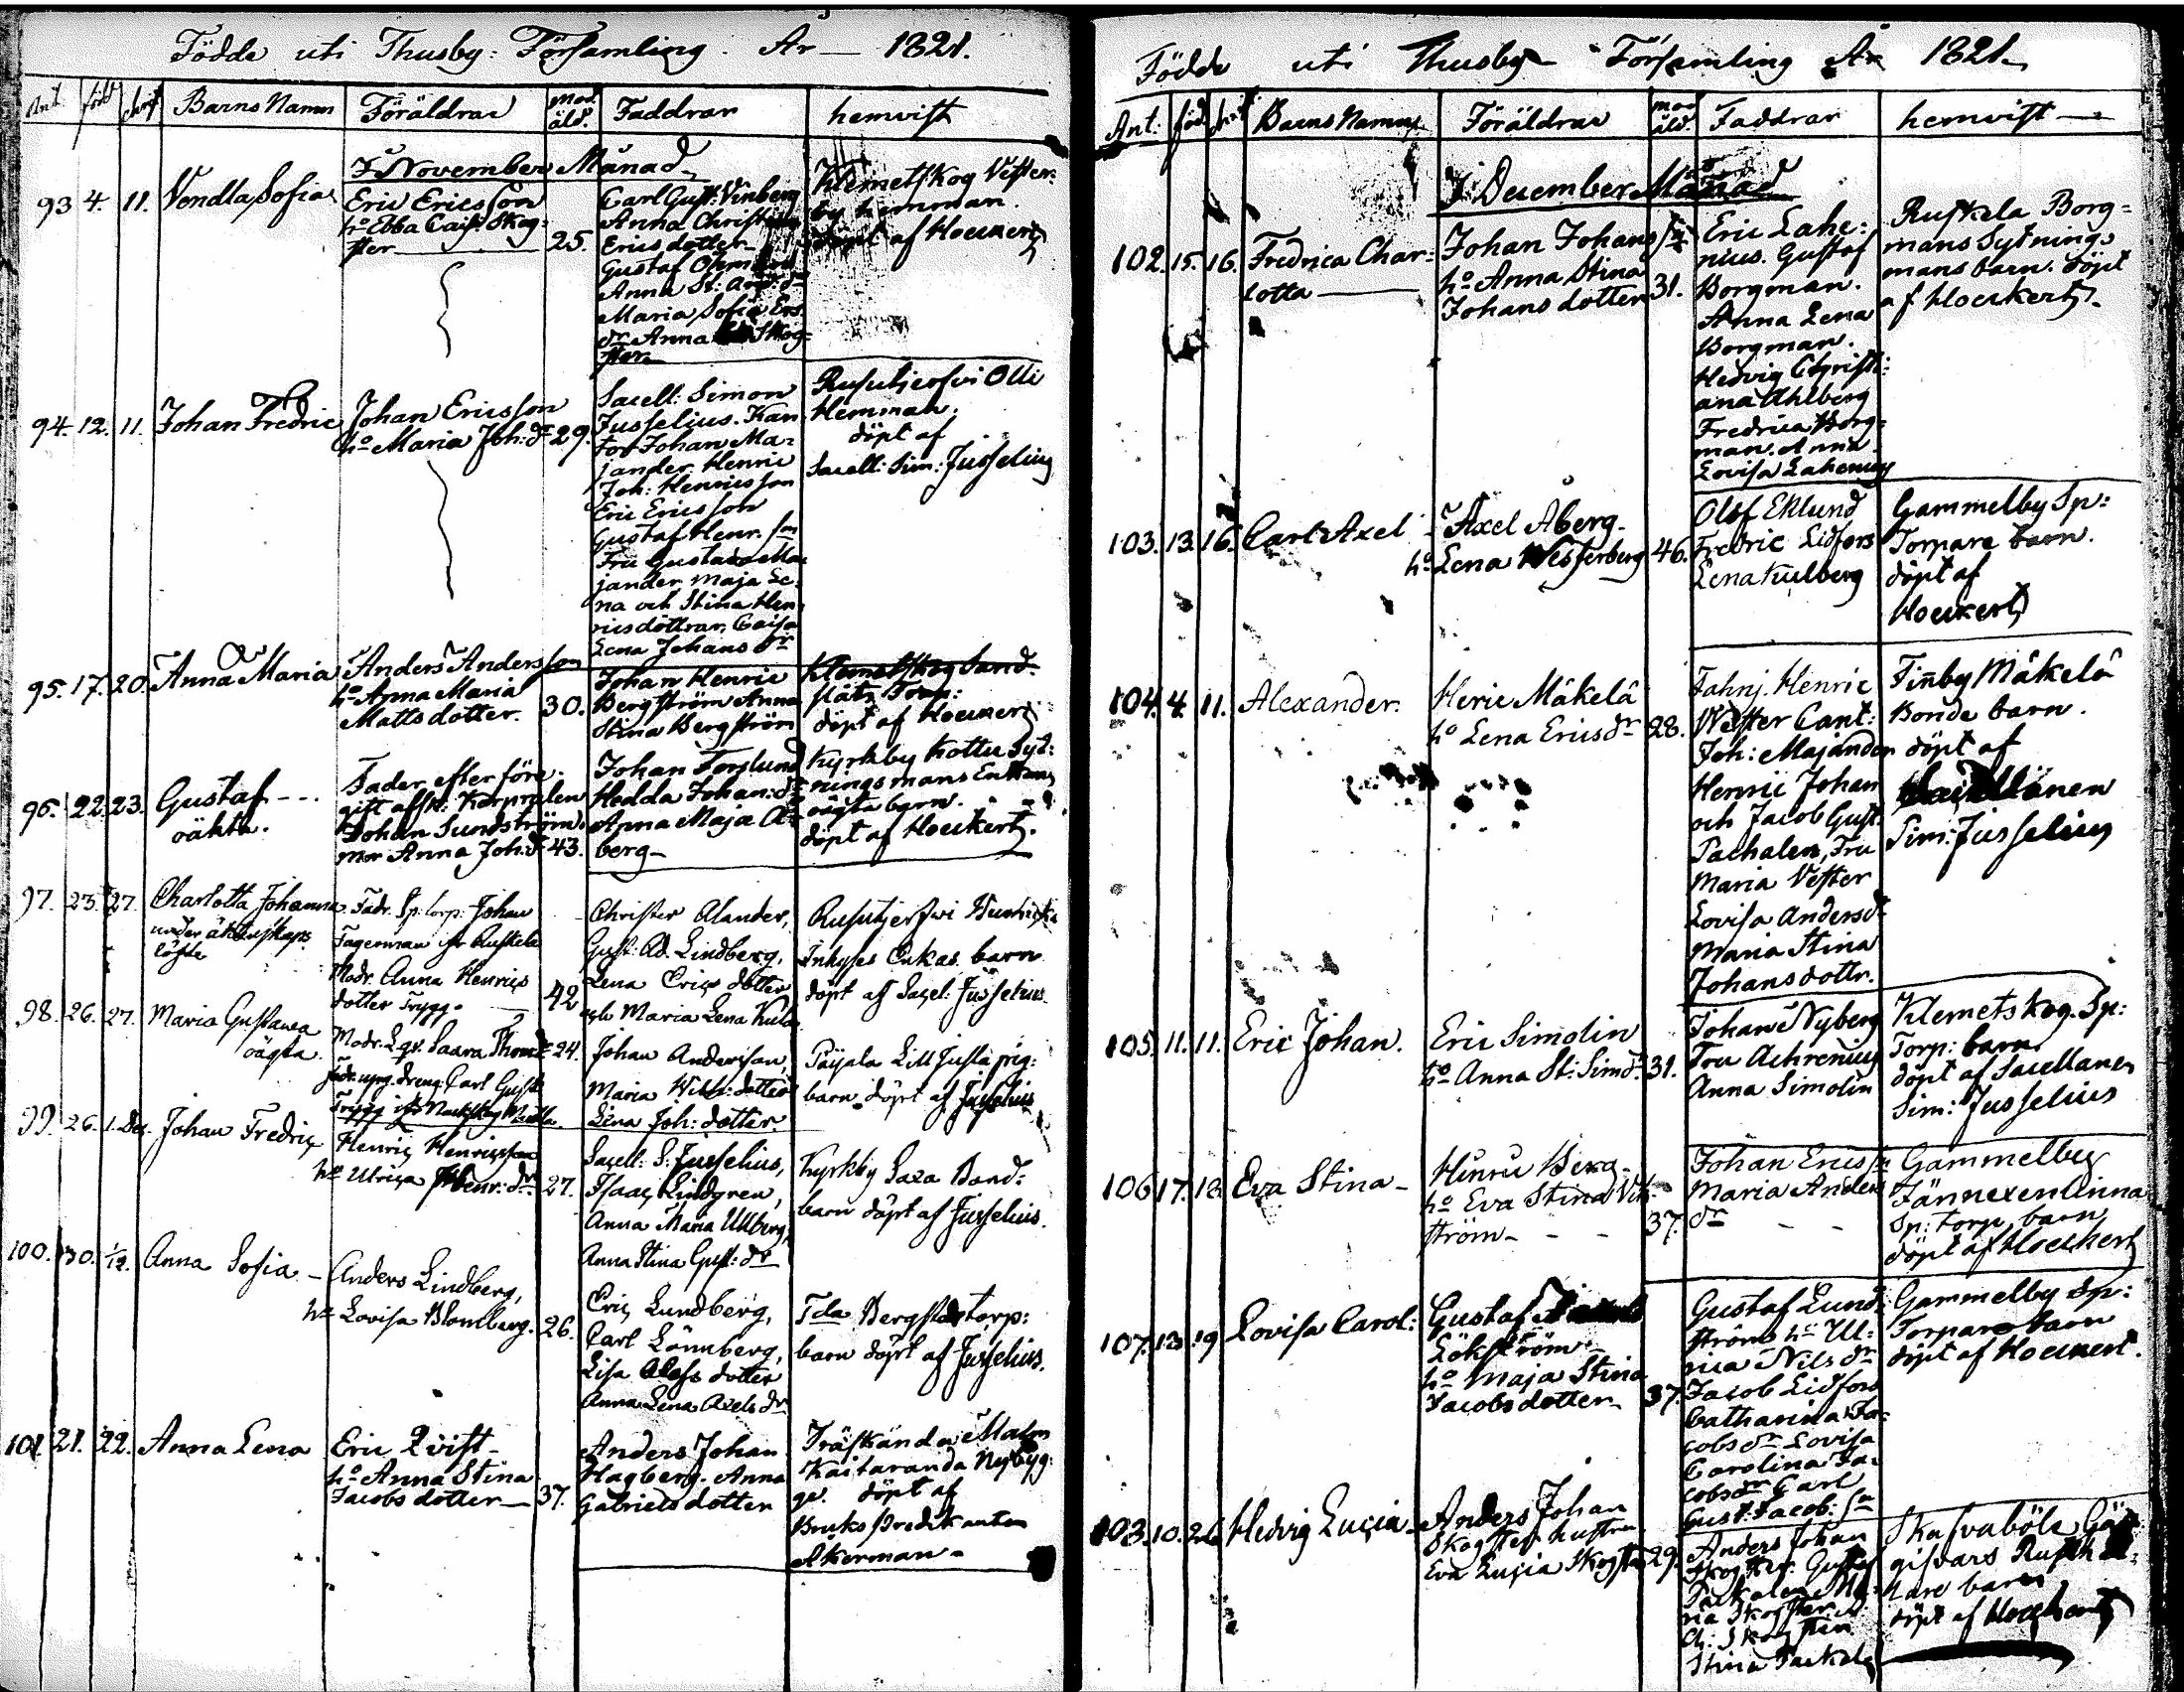 Födde uti Thusby: Församling. År — 1821.
Ant. född christ Barns Namn Föräldrar mod. åld. Faddrar hemvist
I November Månad
93 4. 11. Vendla Sofia
Eric Ericsson
hº Ebba Cajs. Skog-
ster 25.
Carl Gust. Vinberg
Anna Christina
Ericsdotter
Gustaf
Anna St: And: dr
Maria Sofia Ers.
dr Anna Skog-
ster
Klemetskog Vester-
by hemman.
döpt af Hoeckert
94. 12. 11. Johan Fredric
Johan Ericsson
hº Maria Joh: dr 29.
Sacell: Simon
Jusselius. Kan
tor Johan Ma-
jander Henric
Joh: Henricsson
Eric Ericsson
Gustaf Henr. sn
Fru Gustava Ma-
jander Maja Le-
na och Stina Hen-
ricsdöttrar, Caisa
Lena Johans dr
Rusutjerfvi Olli
Hemman.
döpt af
Sacell: Sim: Jusselius
95. 17. 20. Anna Maria
Anders Andersson
hº Anna Maria
Mattsdotter. 30.
Johan Henric
Bergström Anna
Stina Bergström
Klemetskog Sand-
slätt Torp:
döpt af Hoeckert
96. 22. 23. Gustaf ---
oäkta.
Fader efter före-
gift afsk: Korpralen
Johan Sundström.
mor Anna Joh: dr 43.
Johan Forslund
Hedda Johan: dr
Anna Maja A-
berg
Kyrkby Kottu Syt-
ningsmans Enkans
oägta barn.
döpt af Hoeckert.
97. 23. 27. Charlotta Johanna
under äktenskaps
löfte
Fadr. Sp: torp: Johan
Fagerman ifr Ruskela
Modr. Anna Henrics
dotter Trygg. 42
Christer Alander,
Gust: Ad. Lindberg,
Lena Erics dotter
och Maria Lena Kula
Rusutjerfwi
Inhyses Enkas barn
döpt af Sacel: Jusselius
98. 26. 27. Maria Gustava
oägta
Modr. Lgv. Saara Thom: dr 24.
Fadr. uppg. dreng: Carl Gust:
Trygg ifr Nackskog Mattla.
Johan Andersson,
Maria Wilh: dotter
Lena Joh: dotter
Paijala Lill Justa pig:
barn döpt af Jusselius
99. 26. 1. Dec. Johan Fredric
Henric Henricsson
hu Ulrica Henr: dr 27.
Sacell: S: Jusselius,
Isaac Lindgren,
Anna Maria Ullberg,
Anna Stina Gust: dr
Kyrkby Saxa Bond:
barn döpt af Jusselius.
100. 30. 1/12. Anna Sofia —
Anders Lindberg,
hu Lovisa Blomberg. 26.
Eric Lundberg,
Carl Lönnberg,
Lisa Olofs dotter
Anna Lena Axels dr
Tda Bergstadstorp:
barn döpt af Jusselius.
101. 21. 22. Anna Lena
Eric Qvist
hº Anna Stina
Jacobs dotter — 37.
Anders Johan
Hagberg. Anna
Gabriels dotter
Träskända Malm
Kaitaranda Nybyg-
ge. döpt af
Bruks predikanten
Åkerman —
Födde uti Thusby Församling År 1821.
Ant. föd. christ. Barns Namn Föräldrar mod åld. Faddrar hemvist —
I December Månad
102. 15. 16. Fredrica Char-
lotta —
Johan Johans sn
hº Anna Stina
Johans dotter 31.
Eric Lahe-
nius. Gustaf
Borgman.
Anna Lena
Borgman.
Hedvig Christi-
ana Ahlberg
Fredrica Borg-
man. Anna
Lovisa Lahenius
Ruskela Borg-
mans Sytnings
mans barn. döpt
af Hoeckert.
103. 13. 16. Carl Axel
Axel Åberg.
hº Lena Westerberg 46.
Olof Eklund
Fredric Lidfors
Lena Kulberg
Gammelby Sp:
Torpare barn.
döpt af
Hoeckert
104. 4. 11. Alexander.
Heric Mäkelä
hº Lena Erics dr 28.
Fahnj. Henric
Wester Cant:
Joh: Majander
Henric Johan
och Jacob Gust:
Pachalen, Fru
Maria Vester
Lovisa Anders dr
Maria Stina
Johans dottr.
Finby Mäkelä
Bonde barn.
döpt af
Sim: Jusselius
105. 11. 11. Eric Johan.
Eric Simolin
hº Anna St: Sim dr 31.
Johan Nyberg
Fru Achrenius
Anna Simolin
Klemetskog Sp:
Torp: barn
döpt af Sacellanen
Sim: Jusselius
106 17. 18. Eva Stina —
Henric Berg
hº Eva Stina Vik-
ström — 37.
Johan Erics sn
Maria Anders
dr
Gammelby
Jännexen Anna
Sp: torp. barn
döpt af Hoeckert
107. 13. 19 Lovisa Carol:
Gustaf
Lökström
hº Maja Stina
Jacobs dotter 37.
Gustaf Lund-
ström hu Ul-
rica Nils dr
Jacob Lidfors
Catharina Ja-
cobs dr Lovisa
Carolina Ja-
cobs dr Carl
Gust: Jacob: sn
Gammelby Sp:
Torpare barn
döpt af Hoeckert.
103. 10. 26 Hedvig Lucia
Anders Johan
Skogster hustru
Eva Lucia Skogster 29.
Anders Johan
Skogster. Gustaf
Packalen Ma-
ria Skogster
Skogster
Stina Packalen
Skafvaböle Gäst-
gifvars Rusth
lare barn
döpt af Hoeckert